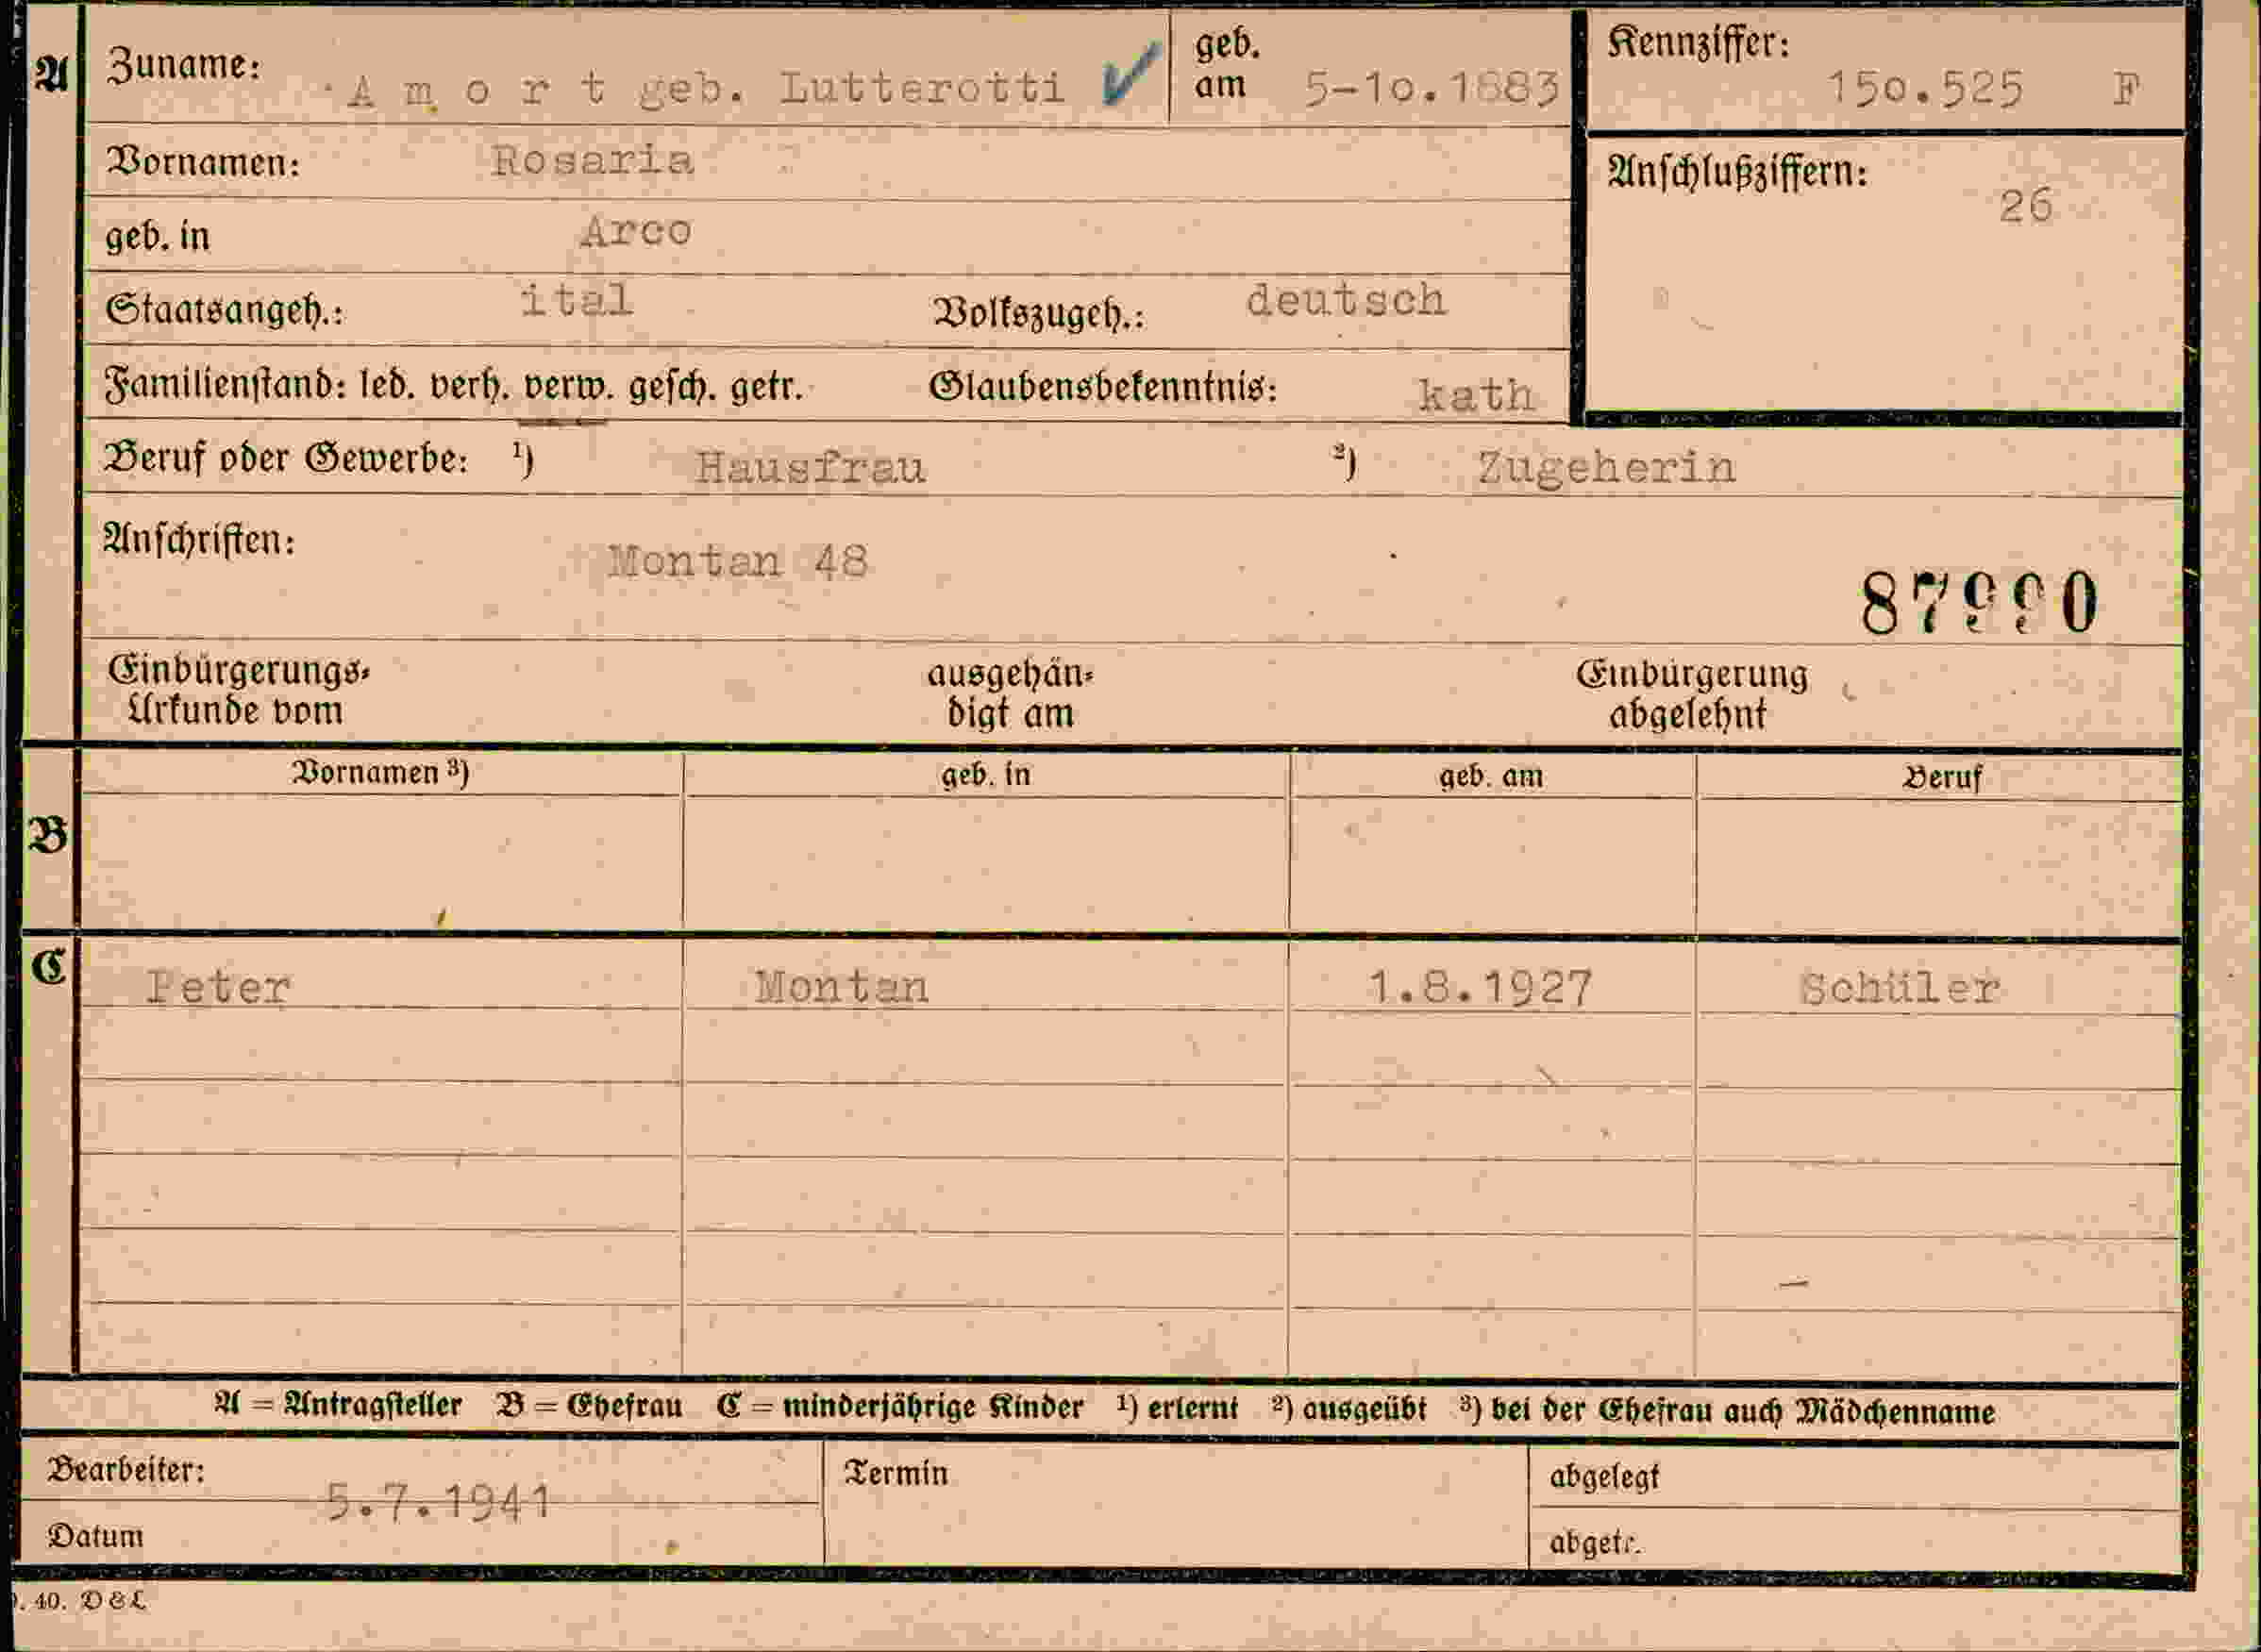 A Zuname: A m o r t geb. Lutterotti ✓ geb. am 5-10.1883 Kennziffer: 150.525 F
Vornamen: Rosaria Anschlußziffern: 26
geb. in Arco
Staatsangeh.: ital Volkszugeh.: deutsch
Familienstand: led. verh. verw. gesch. getr. Glaubensbekenntnis: kath
Beruf oder Gewerbe: ¹) Hausfrau ²) Zugeherin
Anschriften: Montan 48
87990
Einbürgerungs- ausgehän- Einbürgerung
Urkunde vom digt am abgelehnt
Vornamen ³) geb. in geb. am Beruf
B
C Peter Montan 1.8.1927 Schüler
A = Antragsteller B = Ehefrau C = minderjährige Kinder ¹) erlernt ²) ausgeübt ³) bei der Ehefrau auch Mädchenname
Bearbeiter: Termin abgelegt
5.7.1941
Datum abgetr.
. 40. D & L